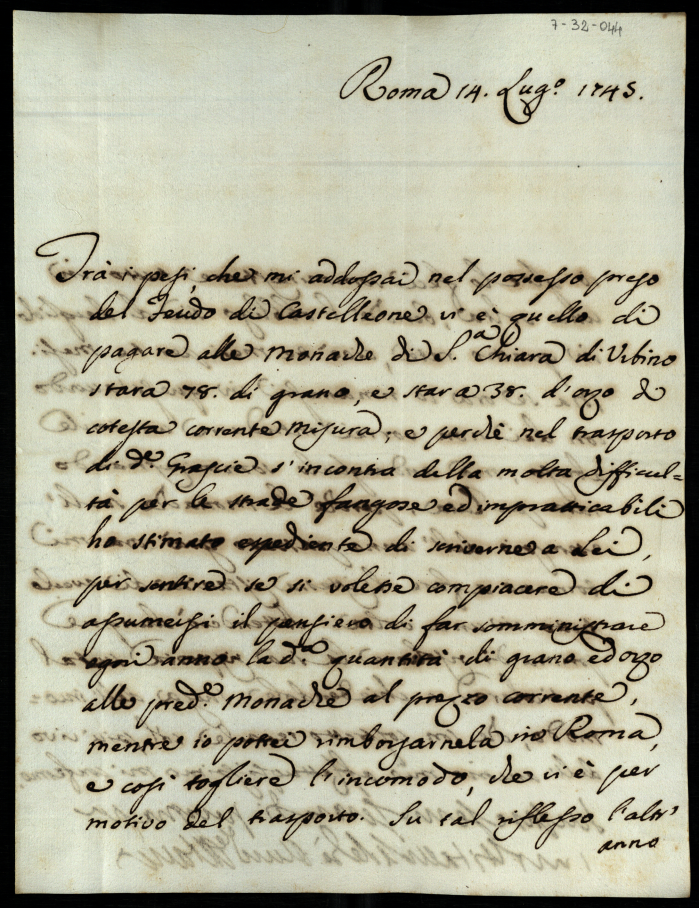 7-32-044
Roma 14. Lug.º 1745.
Trà i pesi, che mi addossai nel possesso preso
del Feudo di Castelleone vi è quello di
pagare alle Monache di S.ª Chiara di Urbino
stara 78. di grano, e stara 38. d'orzo di
cotesta corrente misura; e perchè nel trasporto
di d.e Grascie s'incontra della molta difficul=
tà per le strade fangose ed impratticabili
ho stimato espediente di scriverne a Lei,
per sentire se si volesse compiacere di
assumersi il pensiero di far somministrare
ogni anno la d.ª quantità di grano ed orzo
alle pred.e Monache al prezzo corrente,
mentre io potrei rimborsarnela in Roma,
e così togliere l'incomodo, che vi è per
motivo del trasporto. Su tal riflesso l'altr'
anno